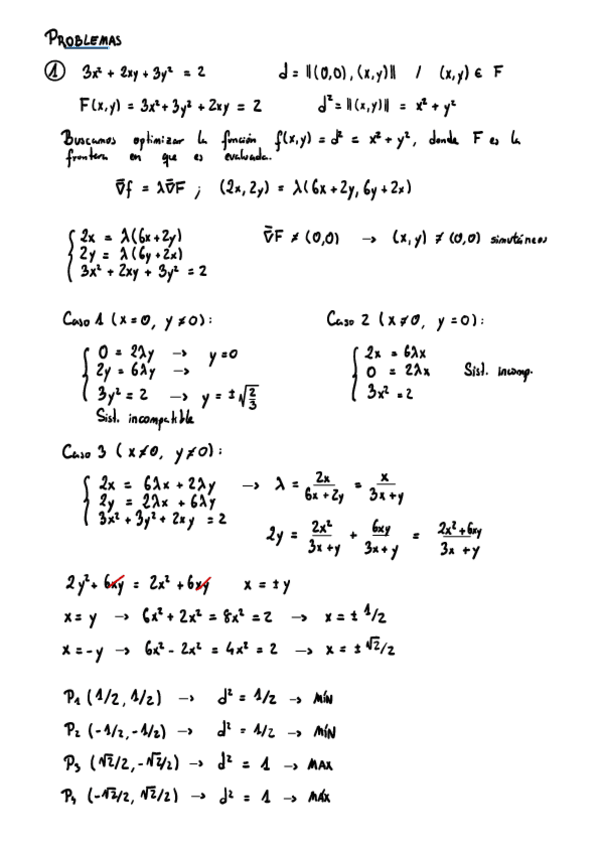 PROBLEMAS
① 3x² + 2xy + 3y² = 2    d = ||(0,0), (x,y)|| / (x,y) ∈ F
F(x,y) = 3x² + 3y² + 2xy = 2    d² = ||(x,y)|| = x² + y²
Buscamos optimizar la función f(x,y) = d² = x² + y², donde F es la
frontera en que es evaluada.
∇̄f = λ∇̄F ; (2x, 2y) = λ(6x + 2y, 6y + 2x)
2x = λ(6x + 2y)    ∇̄F ≠ (0,0) → (x,y) ≠ (0,0) simultáneos
2y = λ(6y + 2x)
3x² + 2xy + 3y² = 2
Caso 1 (x=0, y≠0):
0 = 2λy → y=0
2y = 6λy →
3y² = 2 → y = ±√(2/3)
Sist. incompatible
Caso 2 (x≠0, y=0):
2x = 6λx
0 = 2λx    Sist. incomp.
3x² = 2
Caso 3 (x≠0, y≠0):
2x = 6λx + 2λy → λ = 2x/(6x + 2y) = x/(3x + y)
2y = 2λx + 6λy
3x² + 3y² + 2xy = 2
2y = 2x²/(3x + y) + 6xy/(3x + y) = (2x² + 6xy)/(3x + y)
2y² + 6xy = 2x² + 6xy    x = ± y
x = y → 6x² + 2x² = 8x² = 2 → x = ± 1/2
x = -y → 6x² - 2x² = 4x² = 2 → x = ± √2/2
P₁ (1/2, 1/2) → d² = 1/2 → MÍN
P₂ (-1/2, -1/2) → d² = 1/2 → MÍN
P₃ (√2/2, -√2/2) → d² = 1 → MAX
P₄ (-√2/2, √2/2) → d² = 1 → MÁX